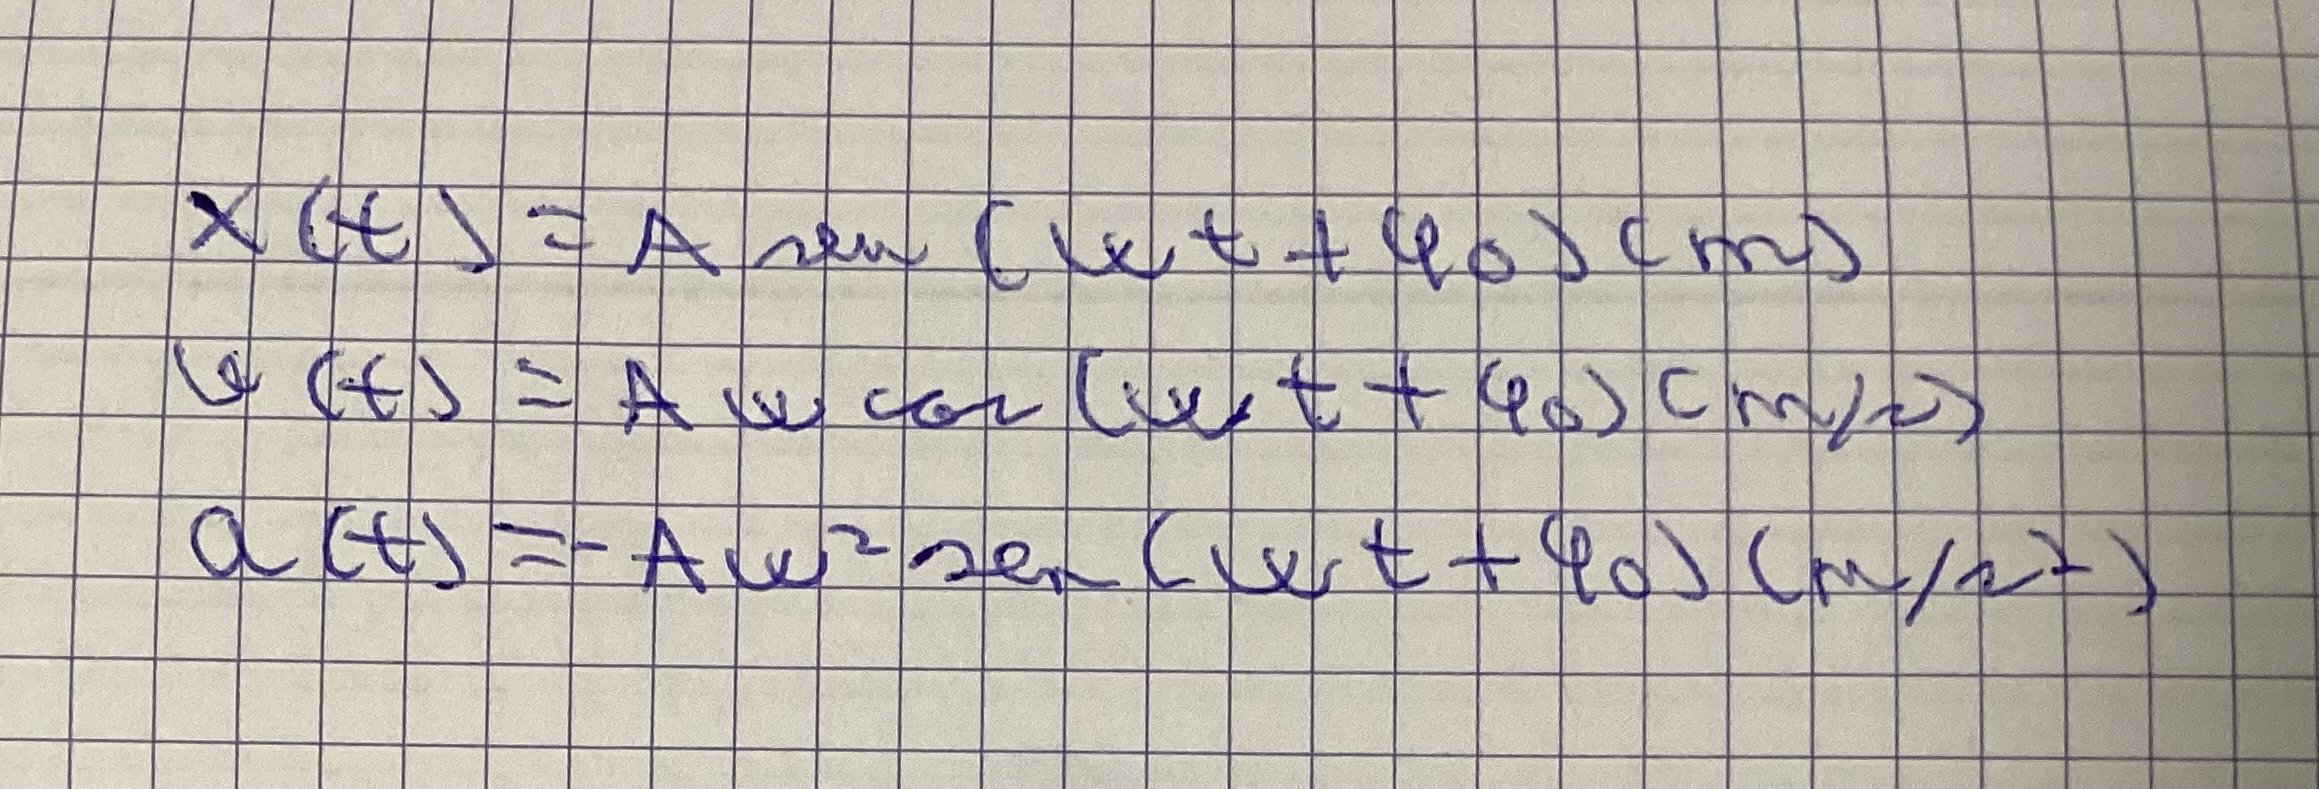 x(t) = A sen (ωt + φ₀) (m)
v(t) = Aω cos (ωt + φ₀) (m/s)
a(t) = -Aω² sen (ωt + φ₀) (m/s²)